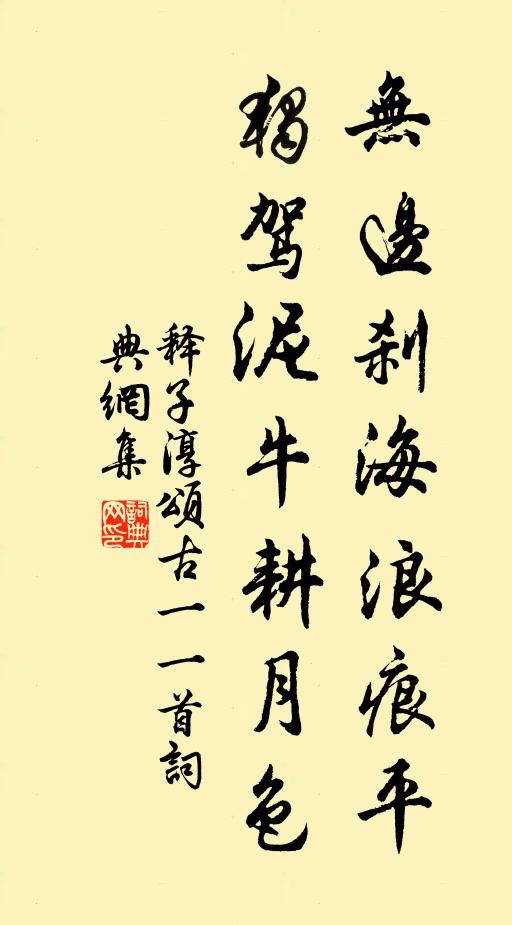 無邊刹海浪痕平
獨駕泥牛耕月色
释子淳頌古一一首詞
典網集
詞典
网印